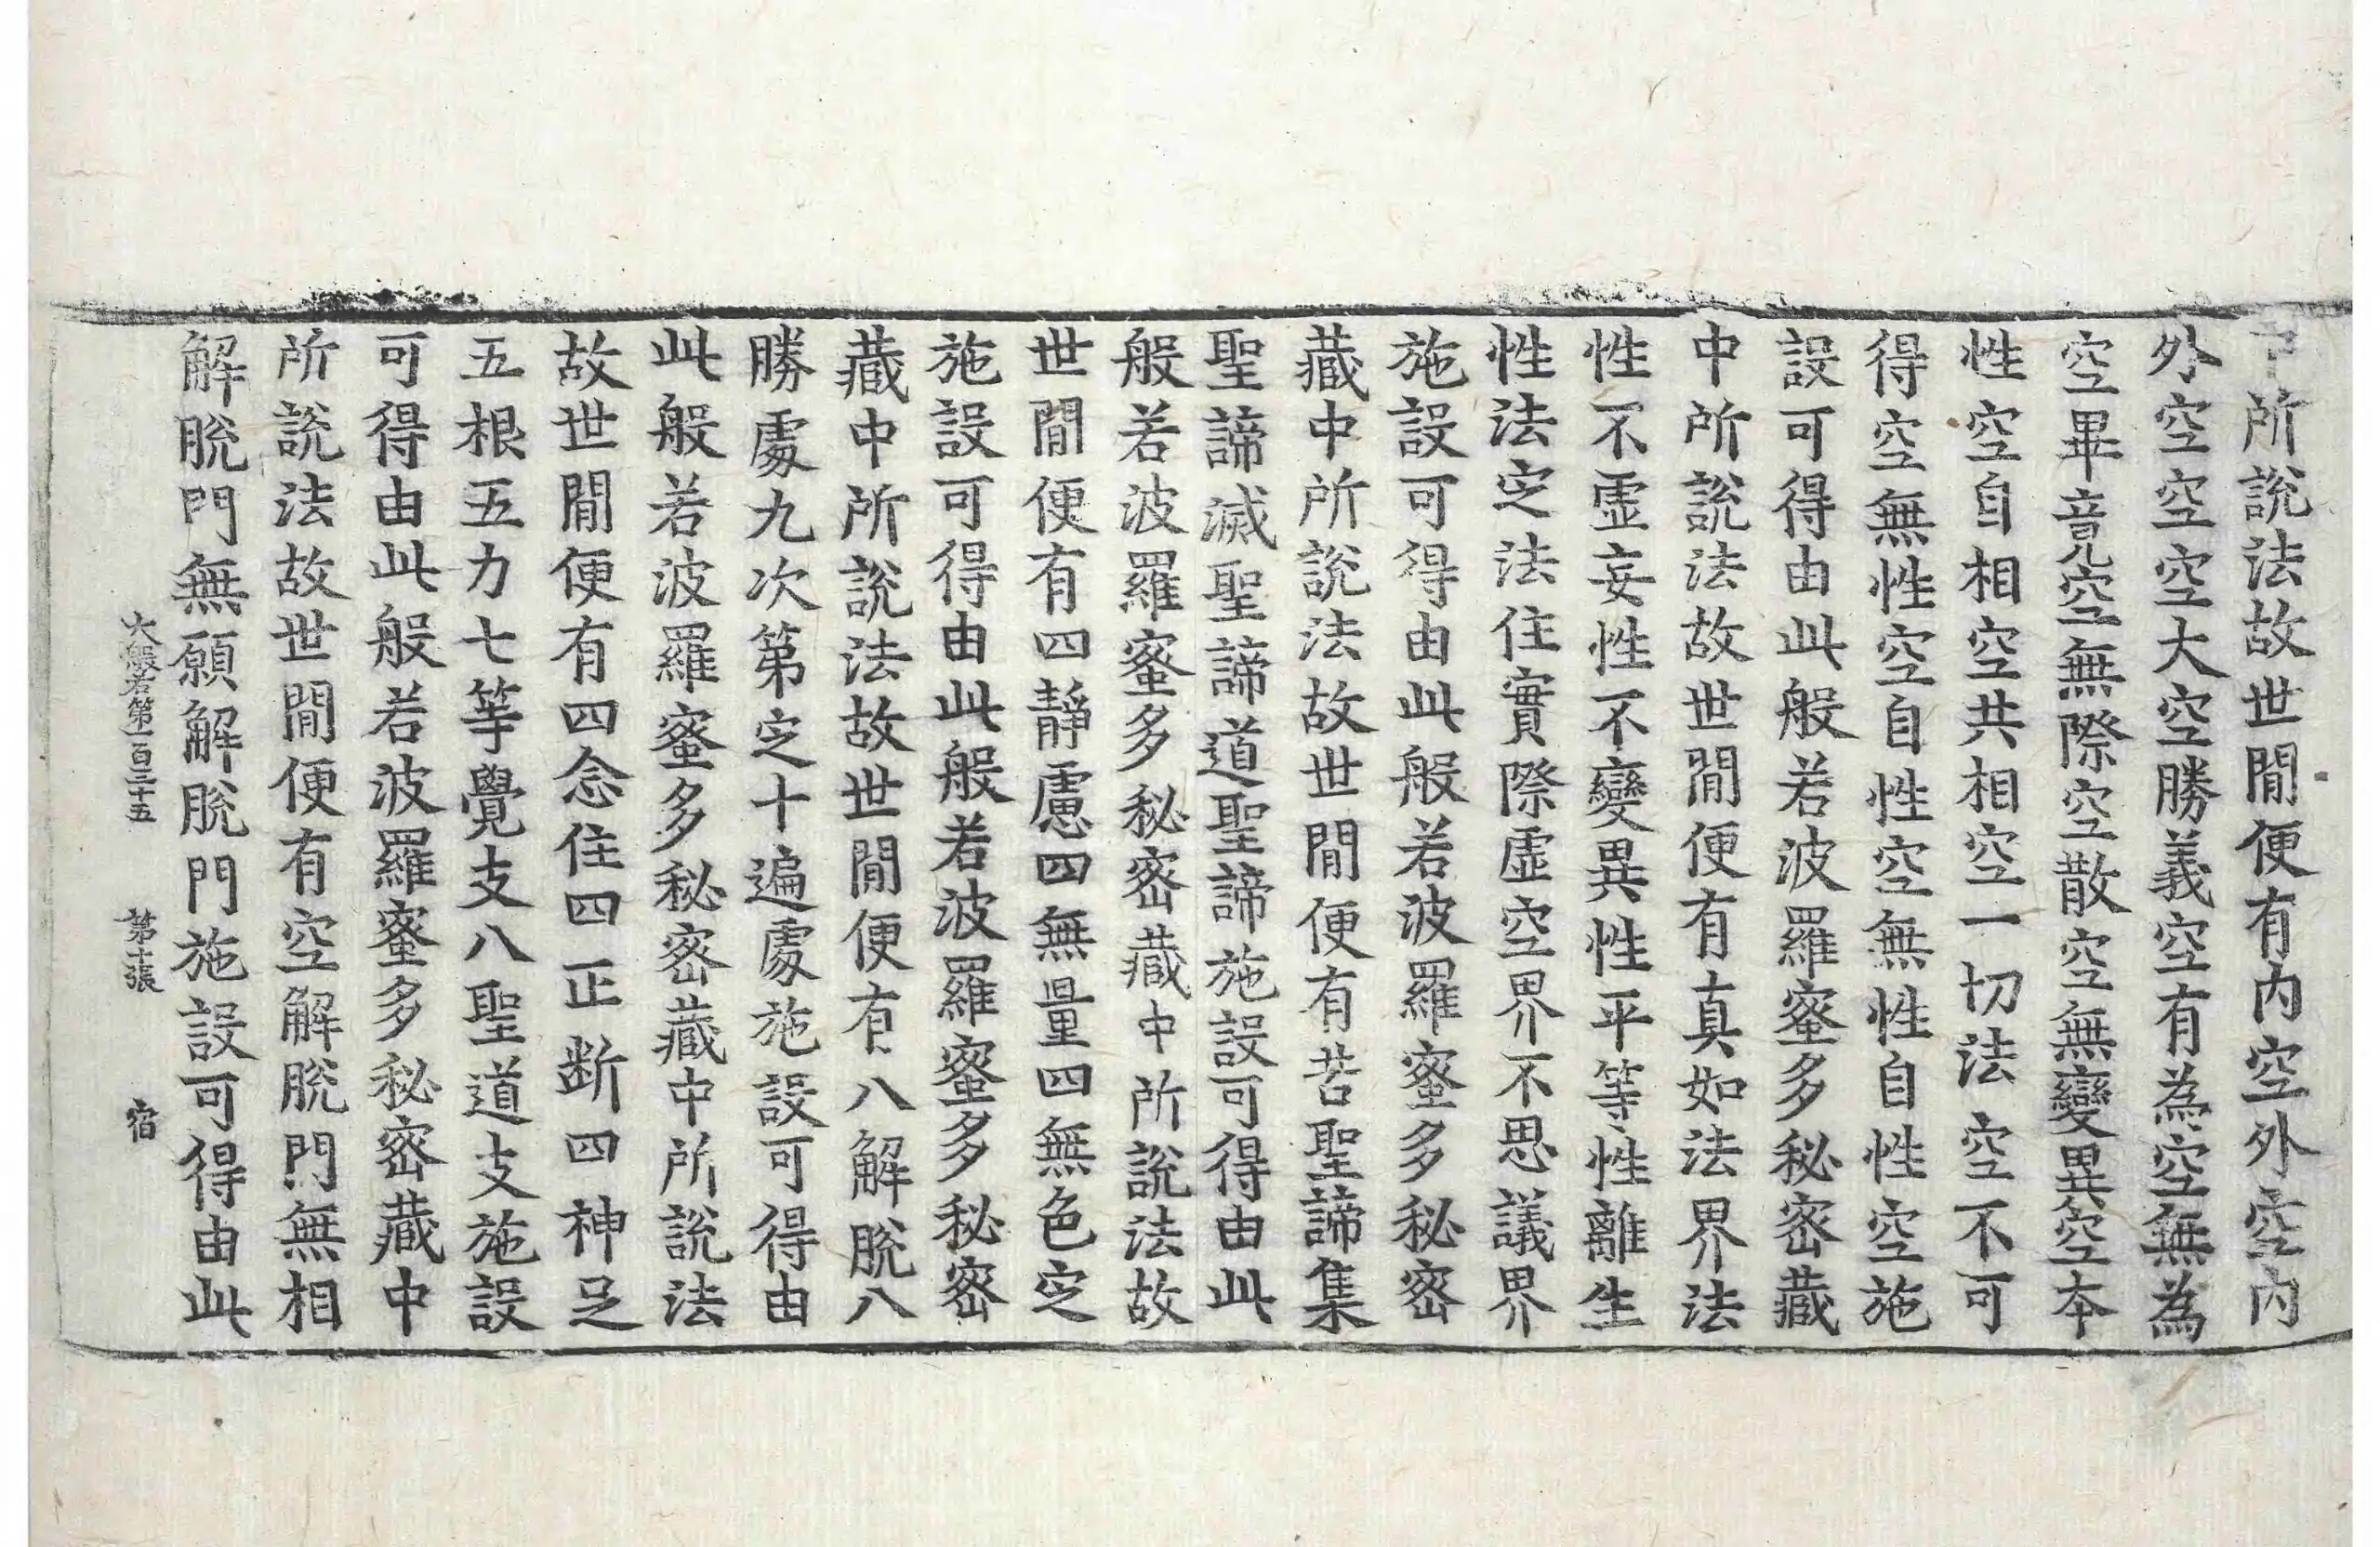 中所說法故世閒便有内空外空内
外空空空大空勝義空有為空無為
空畢竟空無際空散空無變異空本
性空自相空共相空一切法空不可
得空無性空自性空無性自性空施
設可得由此般若波羅蜜多秘密藏
中所說法故世閒便有真如法界法
性不虛妄性不變異性平等性離生
性法定法住實際虛空界不思議界
施設可得由此般若波羅蜜多秘密
藏中所說法故世閒便有苦聖諦集
聖諦滅聖諦道聖諦施設可得由此
般若波羅蜜多秘密藏中所說法故
世閒便有四靜慮四無量四無色定
施設可得由此般若波羅蜜多秘密
藏中所說法故世閒便有八解脫八
勝處九次第定十遍處施設可得由
此般若波羅蜜多秘密藏中所說法
故世閒便有四念住四正断四神足
五根五力七等覺支八聖道支施設
可得由此般若波羅蜜多秘密藏中
所說法故世閒便有空解脫門無相
解脫門無願解脫門施設可得由此
大般若第一百三十五 第十張 宿